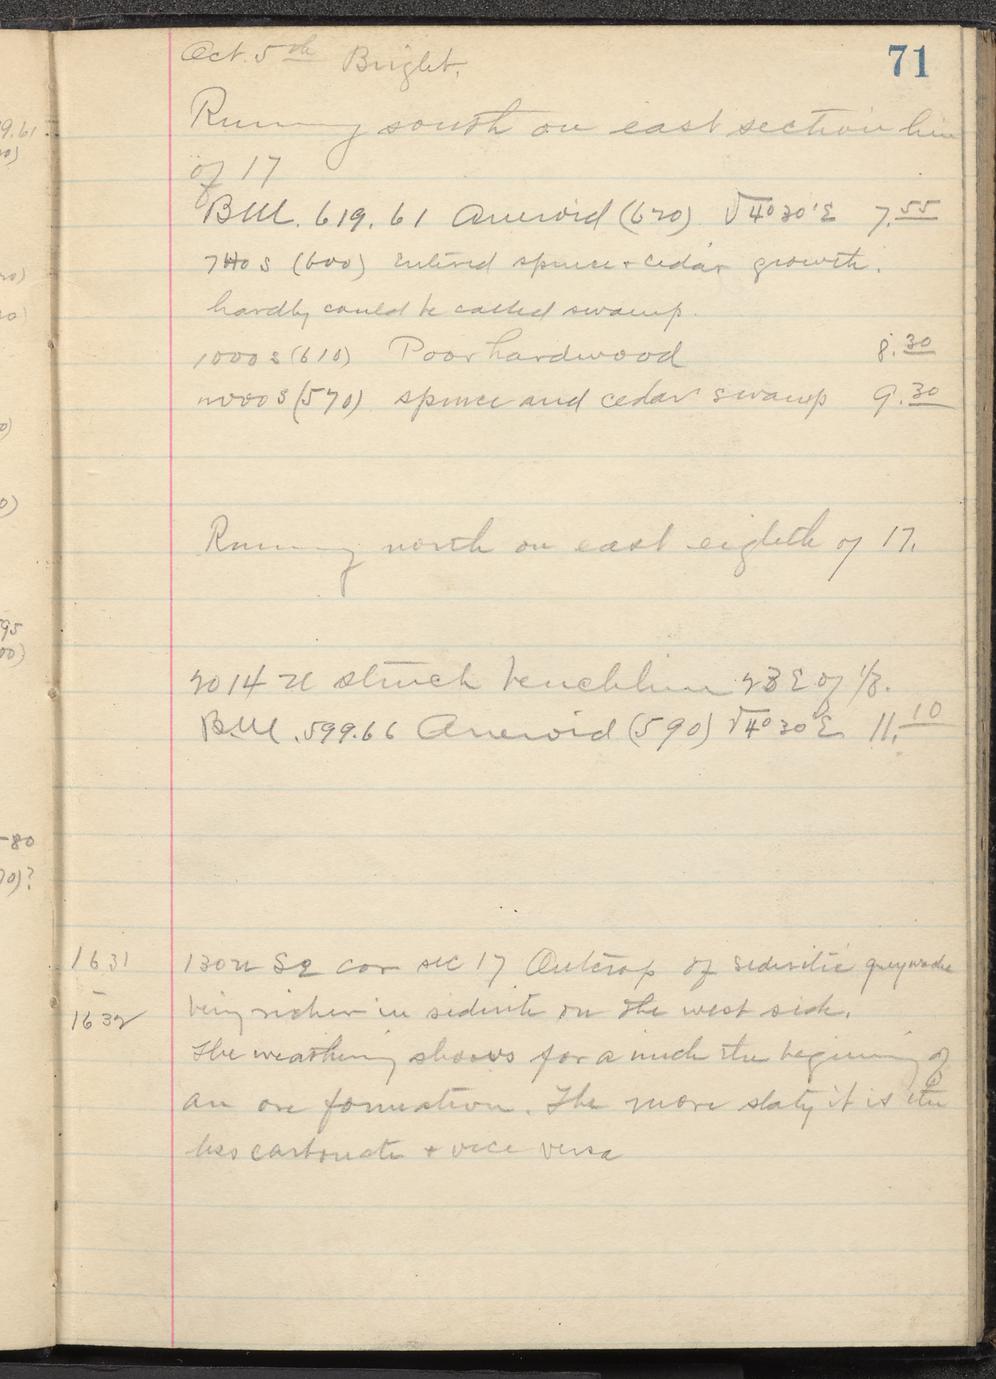 71
Oct. 5th Bright.
Running south on east section line
of 17
BM. 619.61 Aneroid (620) √4°30'E 7.55
740 S (600) Entered spruce + cedar growth.
hardly could be called swamp.
1000 S (610) Poor hardwood 8.30
2000 S (570) spruce and cedar swamp 9.30
Running north on east eighth of 17.
2014 N struck benchline 23 E of 1/8.
BM. 599.66 Aneroid (590) √4°30'E 11.10
1631 130 N SE cor sec 17 Outcrop of sideritic greywacke
-
1632 being richer in siderite on the west side.
The weathering shows for a much the beginning of
an ore formation. The more slaty it is the
less carbonate + vice versa
9.61
95
-80
70)?